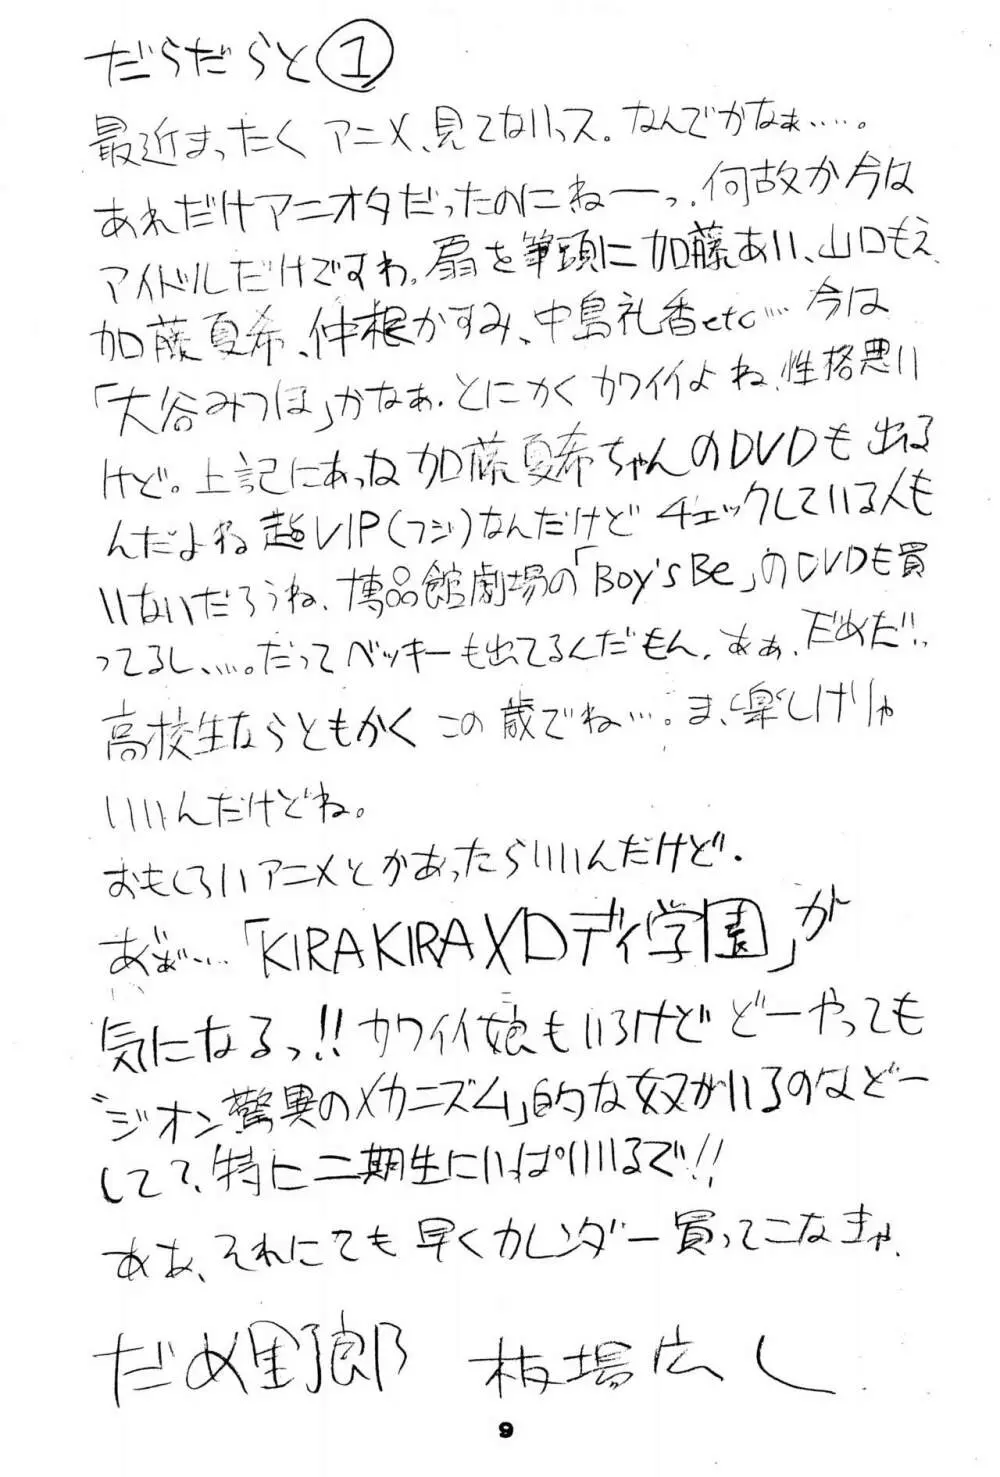 だらだらと①
最近まったく アニメ、見てないっス。なんでかなぁ‥‥。
あれだけアニオタだったのにねーっ。何故か今は
アイドルだけですわ。扇を筆頭に加藤あい、山口もえ、
加藤夏希、仲根かすみ、中島礼香etc‥‥今は
「大谷みつほ」かなぁ。とにかく カワイイよね、性格悪い
けど。上記にあったね 加藤夏希ちゃんのDVDも出る
んだよね 超VIP(フジ)なんだけど チェックしている人も
いないだろうね、博品館劇場の「Boy'sBe」のDVDも買
ってるし、‥‥。だってベッキーも出てるんだもん。あぁ、だめだ‥
高校生ならともかく この歳でね‥‥。ま、楽しけりゃ
いいんだけどね。
おもしろいアニメとかあったらいいんだけど。
あぁ‥‥「KIRAKIRAメロディ学園」が
気になるっ!!カワイイ娘もいるけど どーやっても
"ジオン驚異のメカニズム」的な奴がいるのなどー
してて、特に二期生にいぱいいるで!!
ああ、それにても 早くカレンダー買ってこなきゃ、
だめ野郎 板場広し
9